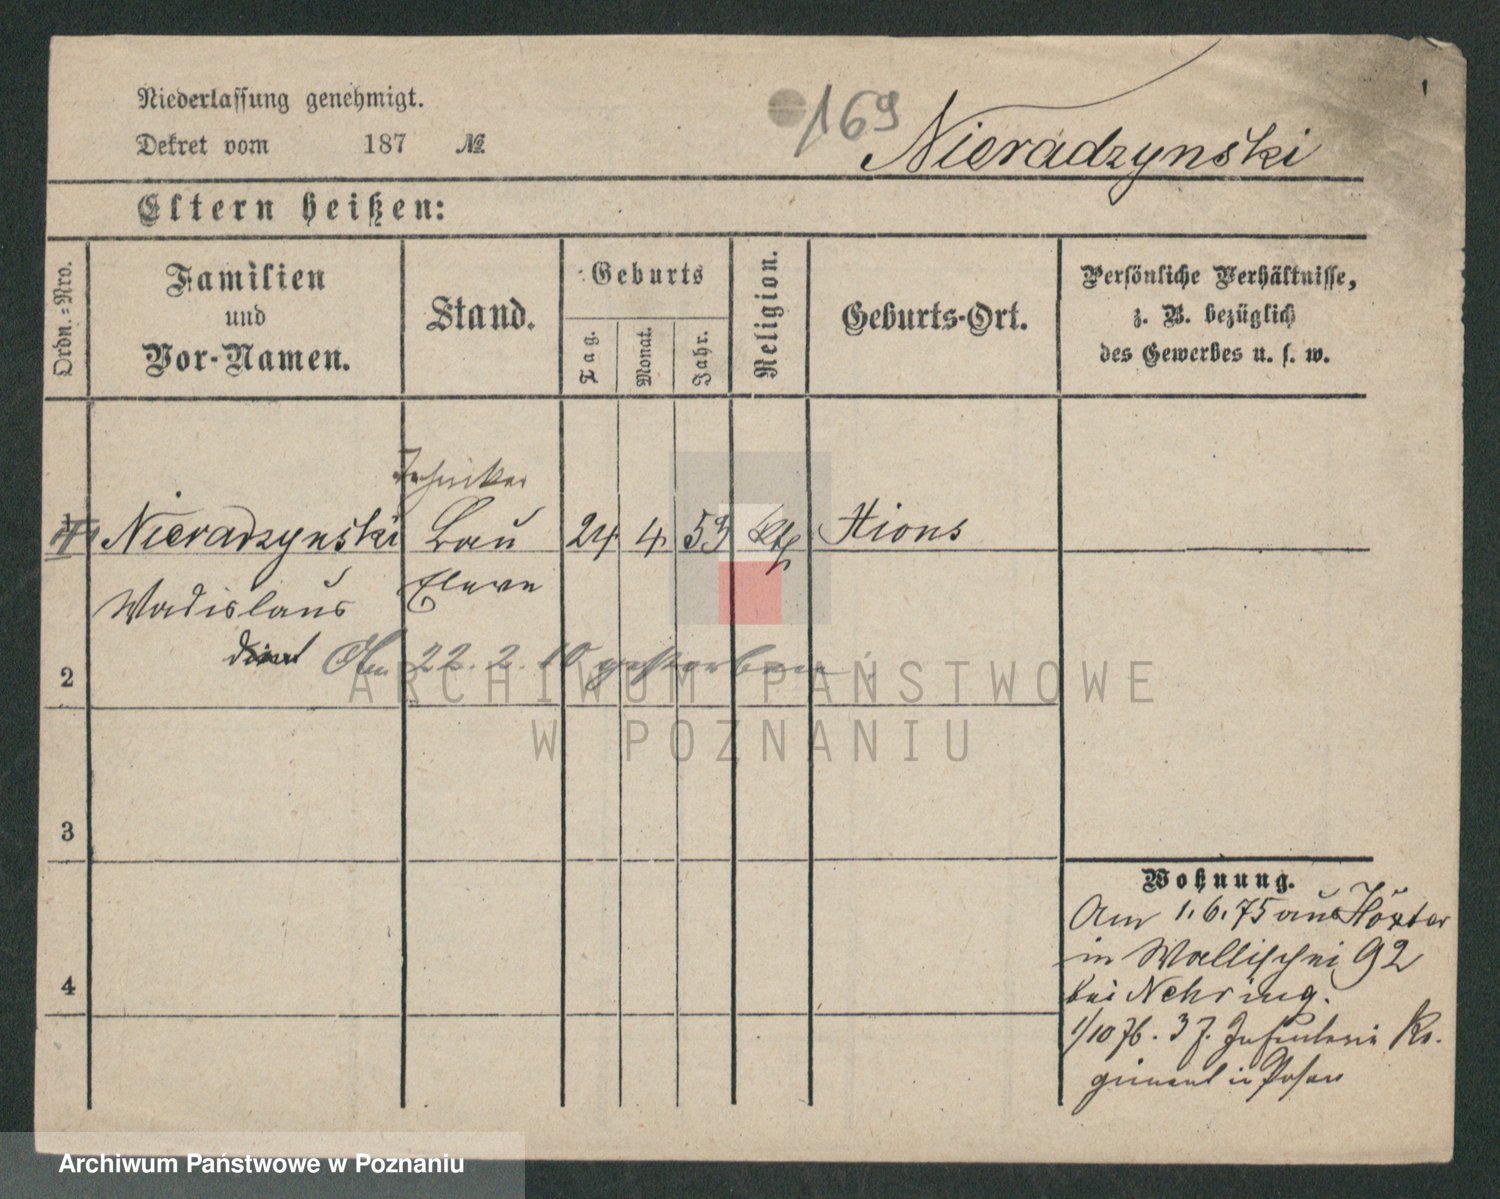 Niederlassung genehmigt.
Dekret vom 187 №
169
Nieradzynski
Eltern heißen:
Ordn.=Nro.
Familien
und
Vor-Namen.
Stand.
Geburts
Tag.
Monat.
Jahr.
Religion.
Geburts-Ort.
Persönliche Verhältnisse,
z. B. bezüglich
des Gewerbes u. s. w.
Techniker
1 Nieradzynski Bau 24 4 53 kth Xions
Wadislaus Eleve
2 22. 2. 10 gestorben.
3
4
Wohnung.
Am 1.6.75 aus Höxter
in Wallischei 92
bei Nehring.
1/10 76. 37. Infanterie Re-
giment in Posen
ARCHIWUM PAŃSTWOWE
W POZNANIU
Archiwum Państwowe w Poznaniu